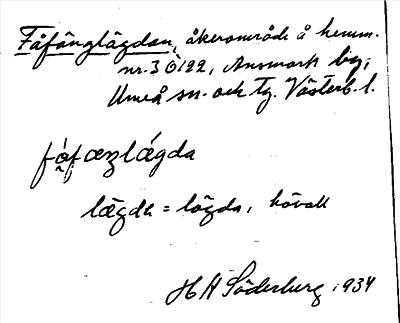 Fåfänglägdan, åkerområde å hemm.
nr. 3 Ö122, Ansmark by,
Umeå sn. och tg. Västerb. l.
fåfæŋlǽgda
lǣgda = lägda, hövall
H H Söderburg 1934